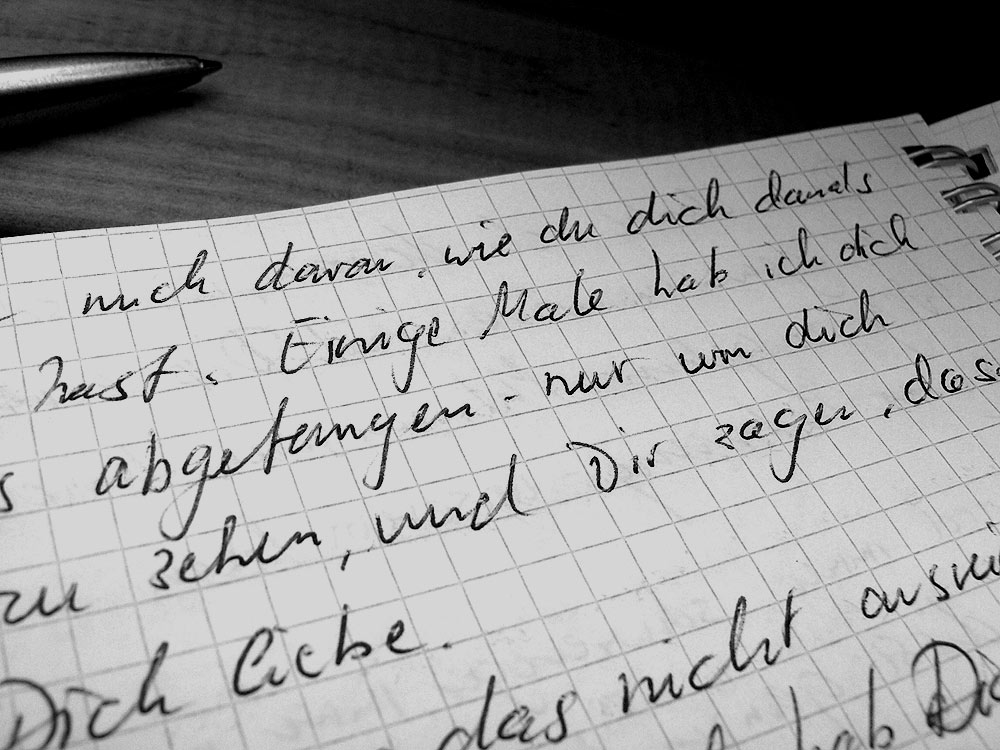 mich daran, wie du dich damals
hast. Einige Male hab ich dich
s abgefangen - nur um dich
zu sehen, und Dir sagen, dass
Dich liebe.
das nicht
hab